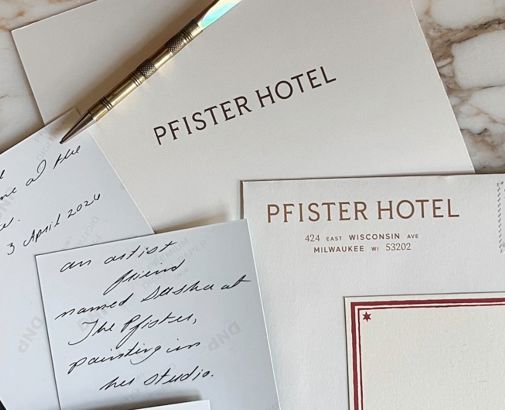 PFISTER HOTEL
at the
3 April 2024
PFISTER HOTEL
424 EAST WISCONSIN AVE
MILWAUKEE WI 53202
an artist
friend
named Sasha at
The Pfister,
painting in
her studio.
DNP
DNP